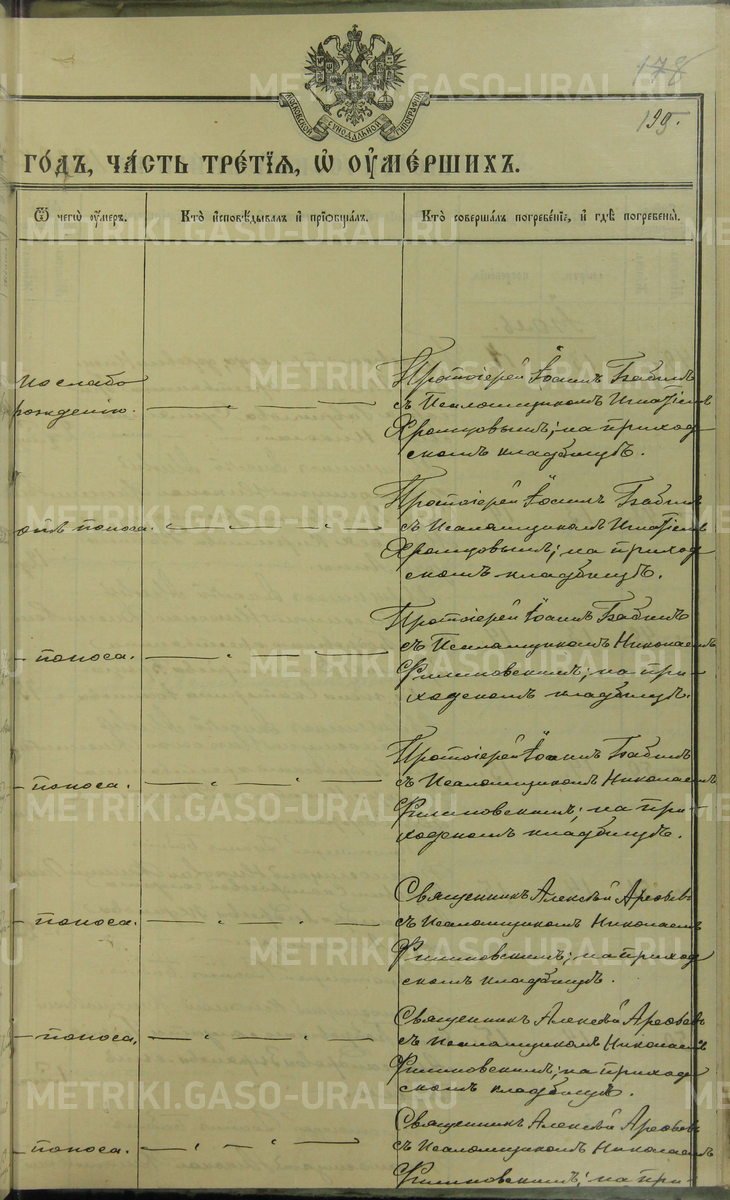 178
195.
МОСКОВСКОЙ СУНОДАЛЬНОЙ ТИПОГРАФІИ
ГОДЪ, ЧАСТЬ ТРЕТІЯ, Ѡ ОУМЕРШИХЪ.
Ѿ чегѡ оумеръ.
Кто исповѣдывалъ и пріобщалъ.
Кто совершалъ погребеніе, и гдѣ погребены.
по слабо
рожденію.
Протоіерей Іоаннъ Бабинъ
съ Псаломщикомъ Игнатіемъ
Хромцовымъ; на приход
скомъ кладбищѣ.
отъ поноса.
Протоіерей Іоаннъ Бабинъ
съ Псаломщикомъ Игнатіемъ
Хромцовымъ; на приход
скомъ кладбищѣ.
– поноса.
Протоіерей Іоаннъ Бабинъ
съ Псаломщикомъ Николаемъ
Филиповскимъ; на при-
ходскомъ кладбищѣ.
– поноса.
Протоіерей Іоаннъ Бабинъ
съ Псаломщикомъ Николаемъ
Филиповскимъ; на при-
ходскомъ кладбищѣ.
– поноса.
Священникъ Алексѣй
съ Псаломщикомъ Николаемъ
Филиповскимъ; на приход
скомъ кладбищѣ.
– поноса.
Священникъ Алексѣй
съ Псаломщикомъ Николаемъ
Филиповскимъ; на приход
скомъ кладбищѣ.
– поноса.
Священникъ Алексѣй
съ Псаломщикомъ Николаемъ
Филиповскимъ; на при-
METRIKI.GASO-URAL.RU